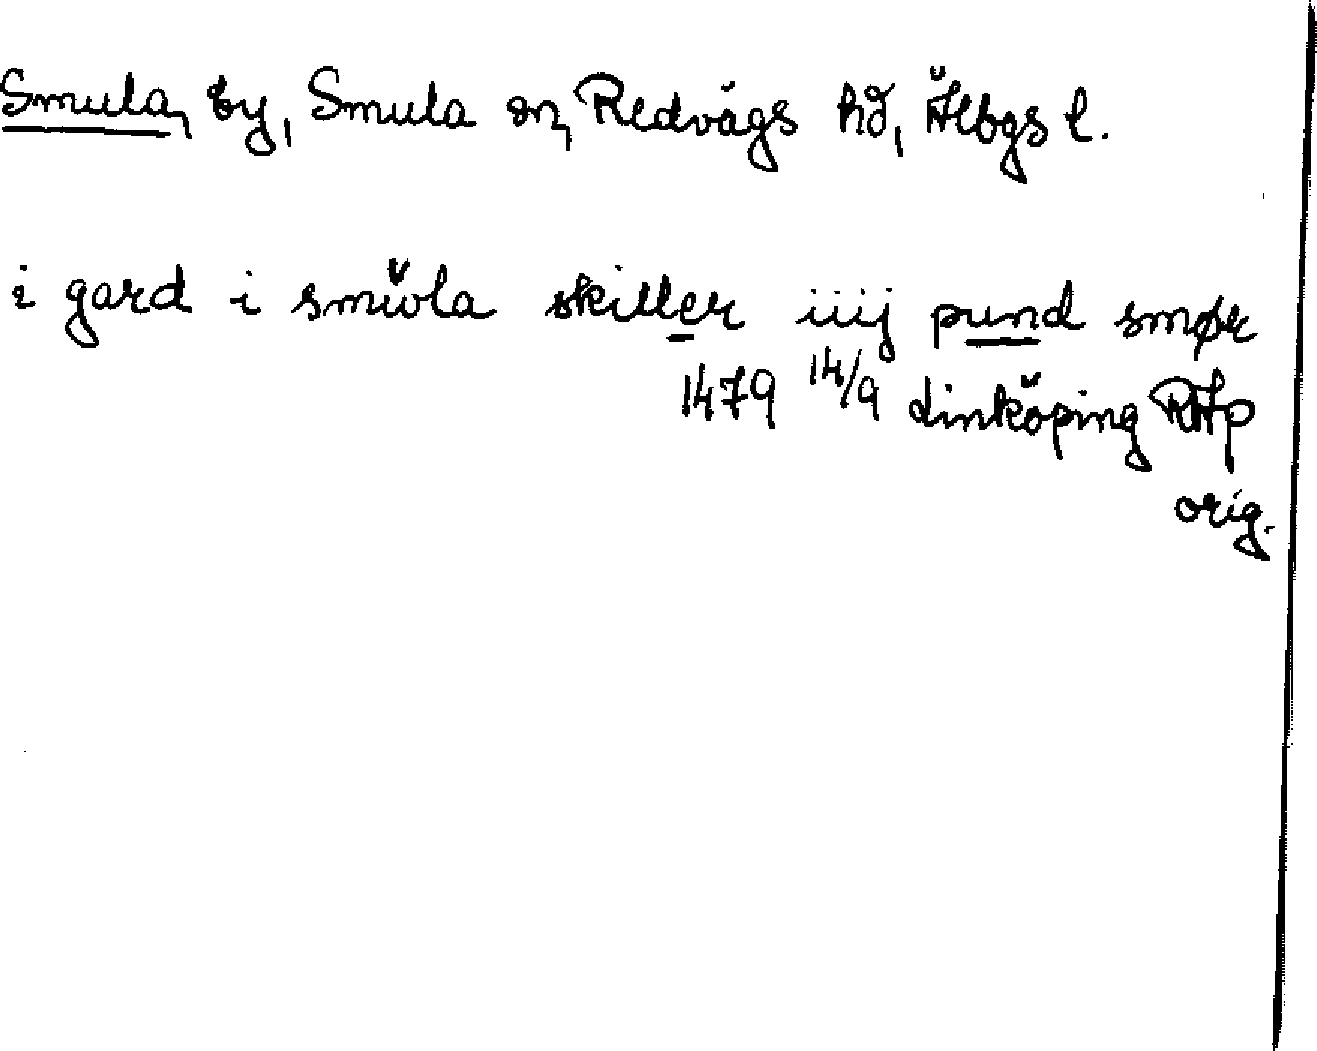 Smula, by, Smula sn, Redvägs hd, Älbgs l.
i gard i smwla skiller iiij pund smør
1479 14/9 Linköping RAp
orig.